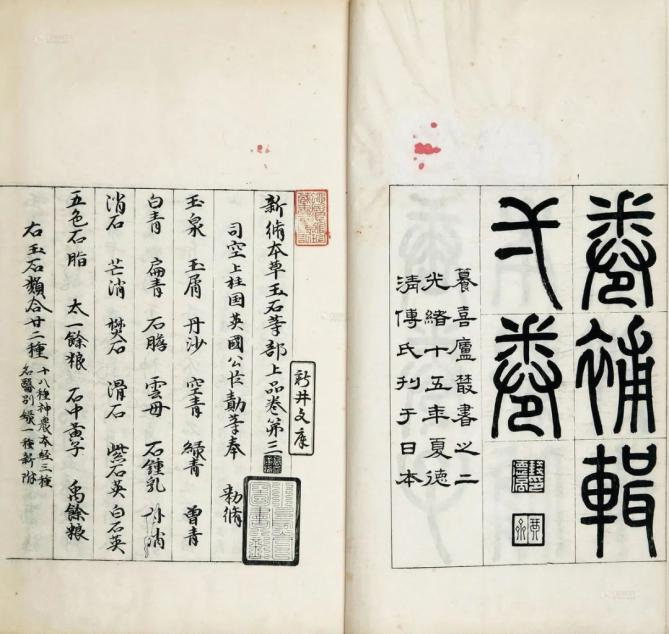 卷補輯
弌卷
籑喜廬叢書之二
光緒十五年夏德
清傅氏刊于日本
新脩本草玉石等部上品卷第三
新井文庫
司空上柱国英國公臣勣等奉 勅脩
玉泉 玉屑 丹沙 空青 緑青 曾青
白青 扁青 石膽 雲母 石鍾乳 朴消
消石 芒消 礬石 滑石 紫石英 白石英
五色石脂 太一餘粮 石中黄子 禹餘粮
右玉石類合廿二種 十八種神農本經三種
名醫別録一種新附